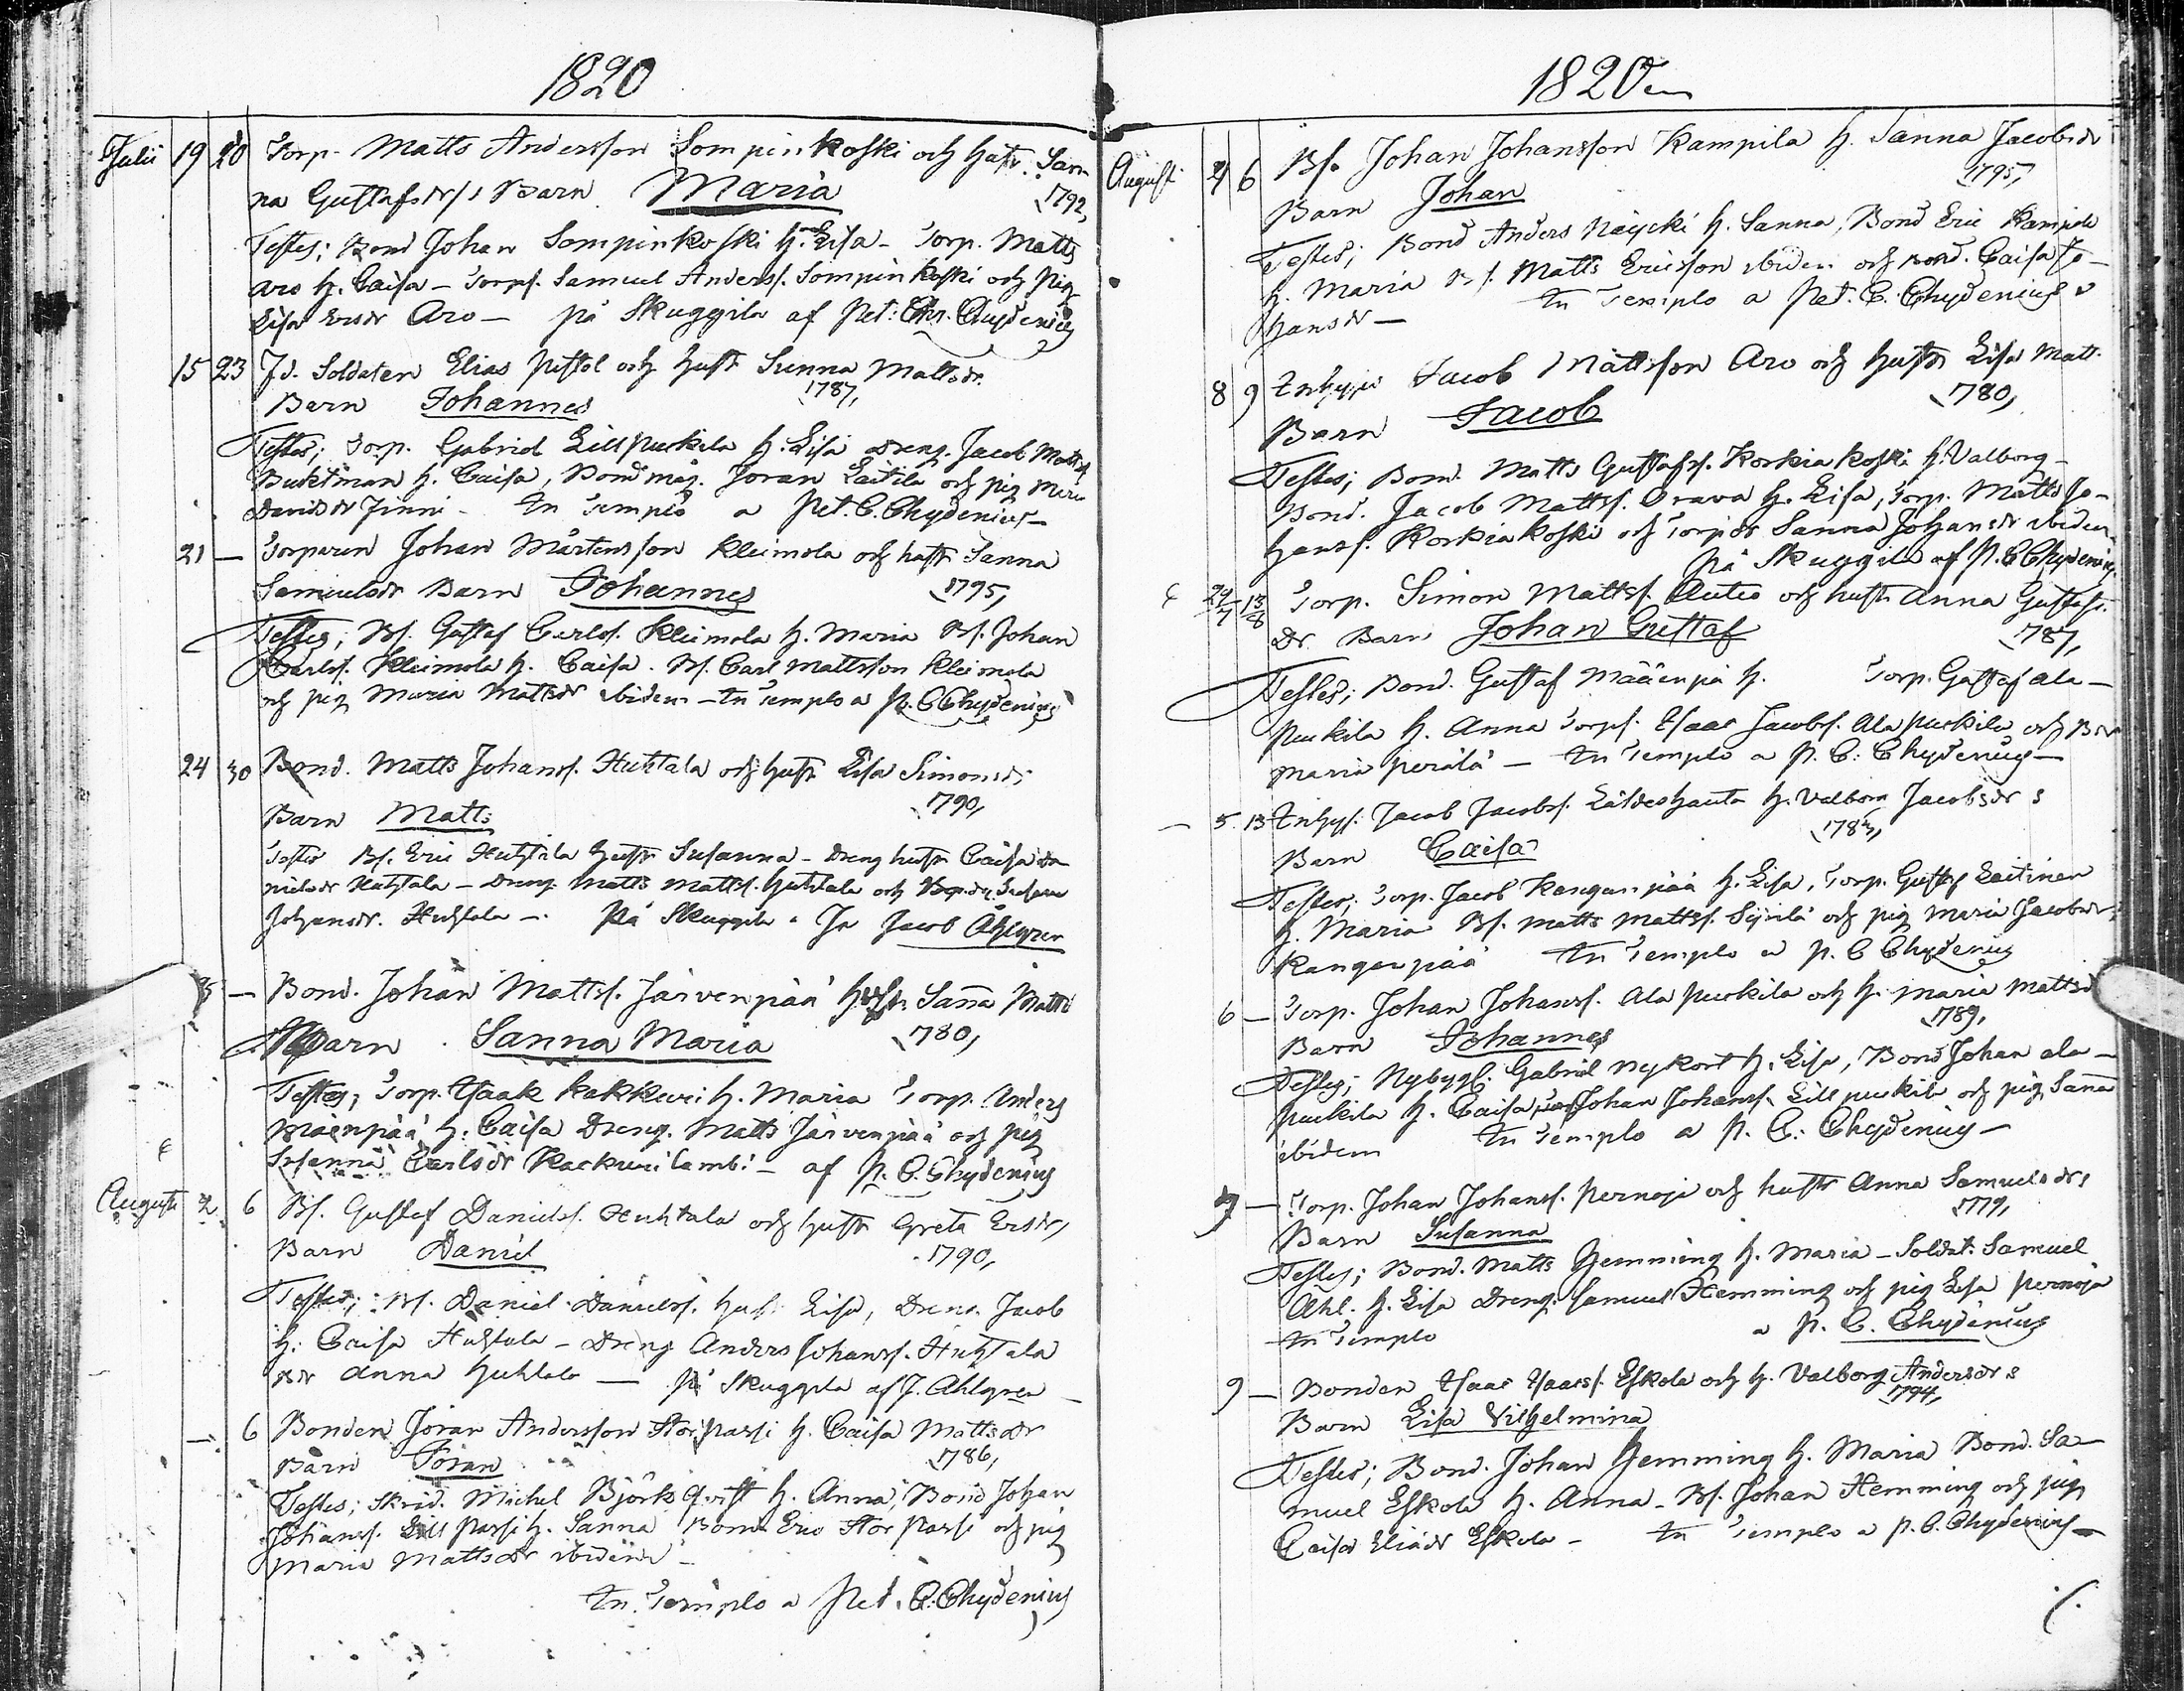 1820
Julii 19 20 Torp. Matts Andersson Sompinkoski och hustr. San-
na Gustafsdr s Barn Maria 1792,
Testes; Bond Johan Sompinkoski h. Lisa - Torp. Matts
Aro h. Caisa - Torps. Samuel Anderss. Sompinkoski och pig
Lisa Ersdr Aro - på Skuggila af Pet: Chr. Chydenius
15 23 Fd. Soldaten Elias Pistol och hustr Sanna Mattsdr.
Barn Johannes 1787,
Testes; Torp. Gabriel Lillpuckila h. Lisa Dreng. Jacob Matts
Bucktman h. Caisa, Bond måg. Jöran Laitila och pig Maria
Davidsdr Finni - In Templo a Pet. C. Chydenius -
21 - Torparen Johan Mårtensson Kleimola och hustr Sanna
Samuelsdr Barn Johannes 1795,
Testes; Bs. Gustaf Carlss. Kleimola h. Maria Bs. Johan
Carlss. Kleimola h. Caisa. Bs. Carl Mattsson Kleimola
och pig Maria Mattsdr ibidem - In Templo a P. C Chydenius
24 30 Bond. Matts Johanss. Huhtala och hustr Lisa Simonsdr
Barn Matts 1790,
Testes Bs. Eric Huhtala hustr Susanna - Dreng hustr Caisa Da-
nielsdr Huhtala - Dreng Matts Matts. Huhtala och
Johansdr. Huhtala - På Skuggila a Jacob Ahlgren
- Bond. Johan Mattss. Järvenpää hustr. Sanna Matts
Barn Sanna Maria 1780,
Testes; Torp. Isaak Kakkuri h. Maria Torp. Anders
Mäenpää h. Caisa Dreng. Matts Järvenpää och pig
Susanna Carlsdr Kackurilambi - af P. C. Chydenius
Augusti 2. 6 Bs. Gustaf Danielss. Huhtala och hustr Greta Ersdr,
Barn Daniel 1790,
Testes; Bs. Daniel Danielss. hustr Lisa, Dreng Jacob
h. Caisa Huhtala - Dreng Anders Johanss. Huhtala
Anna Huhtala - på Skuggila af J. Ahlgren -
- 6 Bonden Jöran Andersson Storpassi h. Caisa Mattsdr
Barn Jöran 1786,
Testes; Skräd. Michel Björkqvist h. Anna, Bond Johan
Johanss. Lill Passi h. Sanna Bond Eric Stor Passi och pig
Maria Mattsdr ibidem -
In Templo a Pet. C. Chydenius
1820
Augusti 4 6 Bs. Johan Johansson Kampila h. Sanna Jacobsdr
Barn Johan 1795,
Testes; Bond Anders Näycki h. Sanna, Bond Eric Kampila
h. Maria Bs. Matts Ericsson ibidem och Bond. Caisa Jo-
hansdr - In Templo a Pet. C. Chydenius
8 9 Inhyses Jacob Mattsson Aro och hustr Lisa Matts
Barn Jacob 1780,
Testes; Bond. Matts Gustafss. Korkiakoski h. Valborg -
Bond. Jacob Mattss. Orava h. Lisa, Torp. Matts Jo-
hanss. Korkiakoski och Torpdr Sanna Johansdr ibidem
på Skuggila af P. C Chydenius
29/7 13/8 Torp. Simon Mattss. Autio och hustr Anna Gustafs-
Dr Barn Johan Gustaf 1787,
Testes; Bond. Gustaf Määenpä h. Torp. Gustaf Ala-
puckila h. Anna Torps. Isaac Jacobss. Ala puckila och Bdr
Maria Perälä - In Templo a P. C. Chydenius -
- 5. 13 Inhys. Jacob Jacobss. Lähdeshauta h. Valborg Jacobsdr s
Barn Caisa
Testes; Torp. Jacob Kanganpää h. Lisa, Torp. Gustaf Laitinen
h. Maria Bs. Matts Mattss. Sijrilä och pig Maria Jacobsdr
Kanganpää In Templo a P. C Chydenius
6 - Torp. Johan Johanss. Ala puckila och h. Maria Mattsd
Barn Johannes 1789,
Testes; Nybygg. Gabriel Nykort h. Lisa, Bond Johan Ala-
puckila h. Caisa, Johan Johanss. Lill puckila och pig Sanna
ibidem In Templo a P. C. Chydenius -
7 - Torp. Johan Johanss. Pernoja och hustr Anna Samuelsdr s
Barn Susanna 1779,
Testes; Bond. Matts Hemming h. Maria - Soldat. Samuel
Ahl. h. Lisa Dreng. Samuel Hemming och pig Lisa Pernoja
In Templo a P. C. Chydenius
9 - Bonden Isaac Isaacs. Eskola och h. Valborg Andersdr s
Barn Lisa Vilhelmina 1794,
Testes; Bond. Johan Hemming h. Maria Bond. Sa-
muel Eskola h. Anna - Bs. Johan Hemming och pig
Caisa Eliædr Eskola - In Templo a P. C. Chydenius -